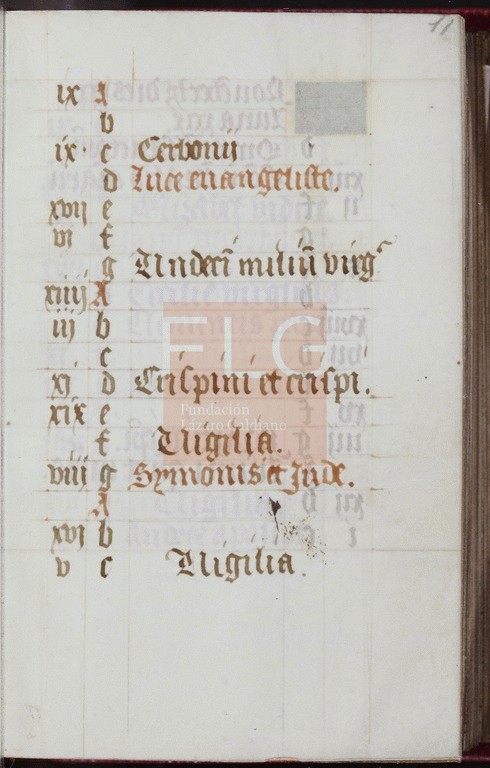 11
ix A
b
ix · c Cerbonij
d Luce evangeliste.
xvij e
vj f
g Undecī miliū virgᶜ
xiiij A
iij b
c
xj d Crispini et crispi.
xix e
f Uigilia.
viij g Symonis et Jude.
A
xvj b
v c Uigilia.
FLG
Fundación
Lázaro Galdiano